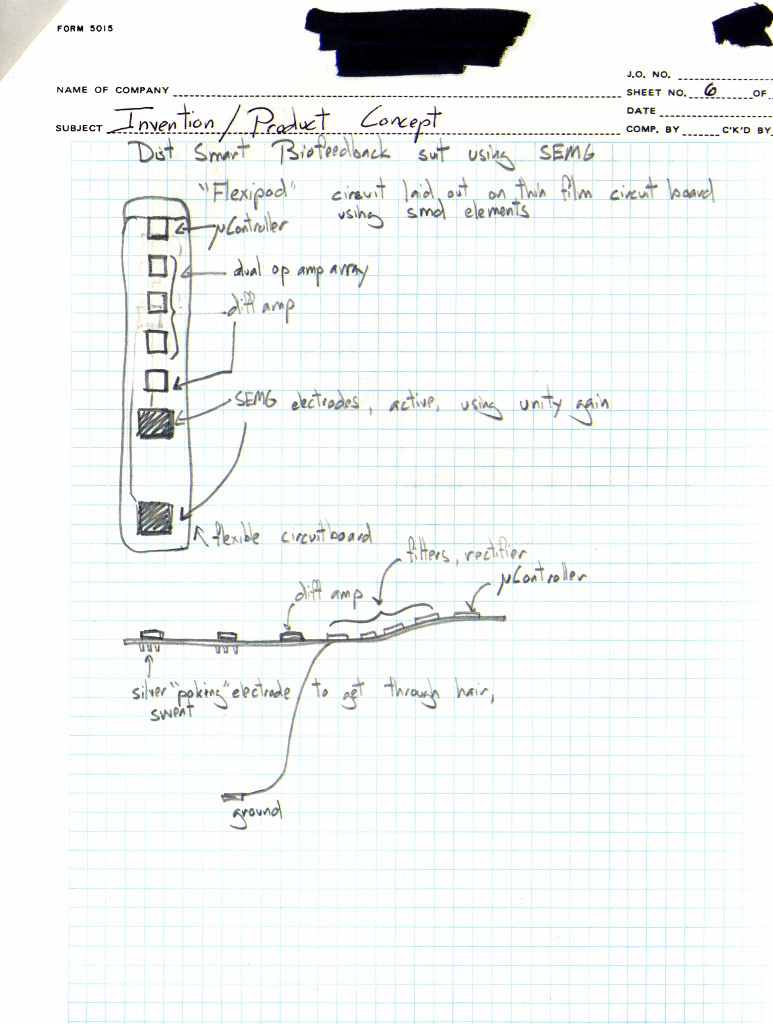 FORM 5015
J.O. NO.
NAME OF COMPANY
SHEET NO. 6 OF
DATE
SUBJECT Invention / Product Concept
COMP. BY C'K'D BY
Dist Smart Biofeedback suit using SEMG
"Flexipod" circuit laid out on thin film circuit board
using smd elements
μController
dual op amp array
diff amp
SEMG electrodes, active, using unity again
flexible circuitboard
filters, rectifier
μController
diff amp
silver "poking" electrode to get through hair,
sweat
ground